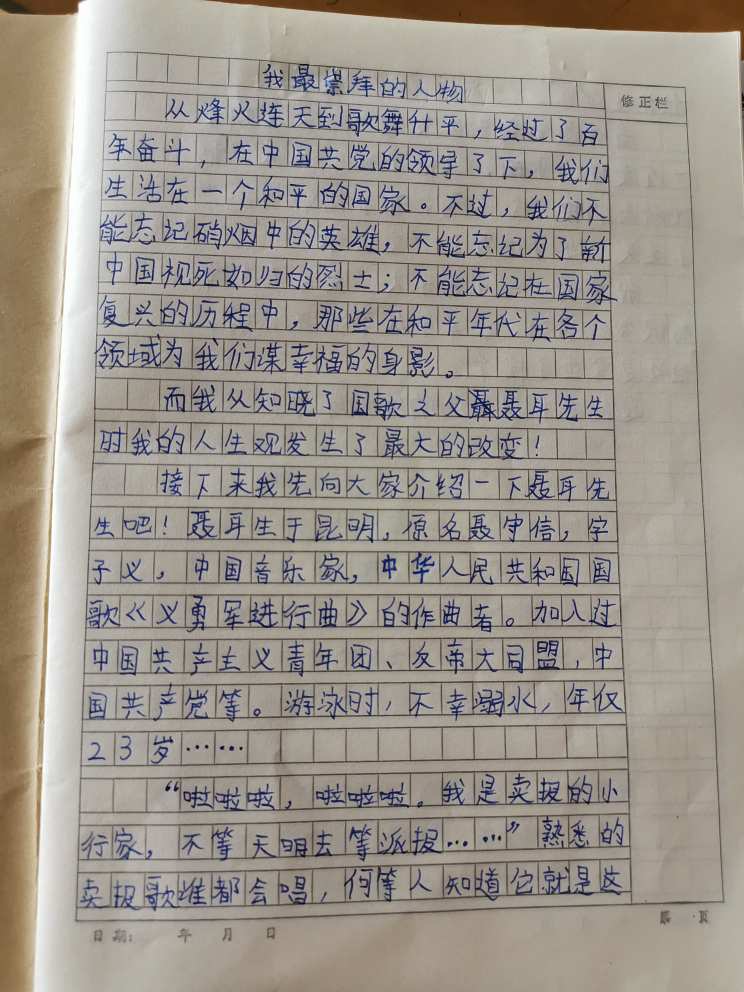 我最崇拜的人物
修正栏
从烽火连天到歌舞升平，经过了百
年奋斗，在中国共党的领导了下，我们
生活在一个和平的国家。不过，我们不
能忘记硝烟中的英雄，不能忘记为了新
中国视死如归的烈士；不能忘记在国家
复兴的历程中，那些在和平年代在各个
领域为我们谋幸福的身影。
而我从知晓了国歌之父聂耳先生
时我的人生观发生了最大的改变！
接下来我先向大家介绍一下聂耳先
生吧！聂耳生于昆明，原名聂守信，字
子义，中国音乐家，中华人民共和国国
歌《义勇军进行曲》的作曲者。加入过
中国共产主义青年团、反帝大同盟，中
国共产党等。游泳时，不幸溺水，年仅
23岁……
“啦啦啦，啦啦啦。我是卖报的小
行家，不等天明去等派报……”熟悉的
卖报歌谁都会唱，何等人知道它就是这
日期： 年 月 日
第 页